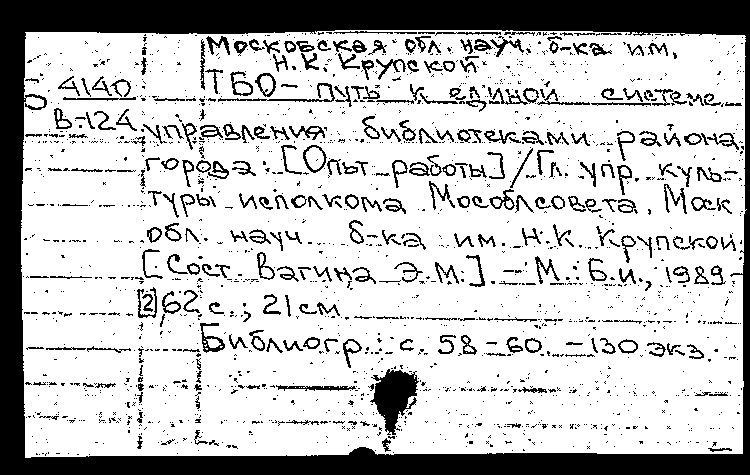 Московская обл. науч. б-ка им.
Н.К. Крупской
4140
В-124
ТБО – путь к единой системе
управления библиотеками района,
города: [Опыт работы] / Гл. упр. куль-
туры исполкома Мособлсовета, Моск
обл. науч. б-ка им. Н.К. Крупской;
[Сост. Вагина Э.М.]. – М.: Б.и., 1989 –
[2] 62 с.; 21 см.
Библиогр.: с. 58 – 60. – 130 экз.